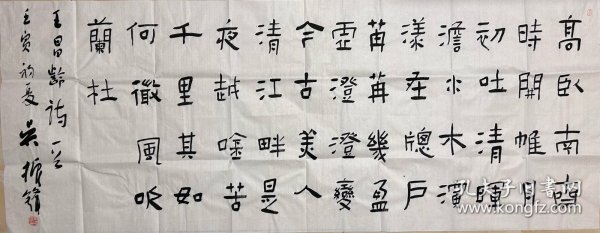 高臥南齋
時開帷月
初吐清暉
澹水木演
漾在牕戶
苒苒幾盈
虛澄澄變
今古美人
清江畔是
夜越吟苦
千里其如
何微風吹
蘭杜
王昌齡詩一首
壬寅初夏 吳振鋒
孔夫子旧书网
www.kongfz.com